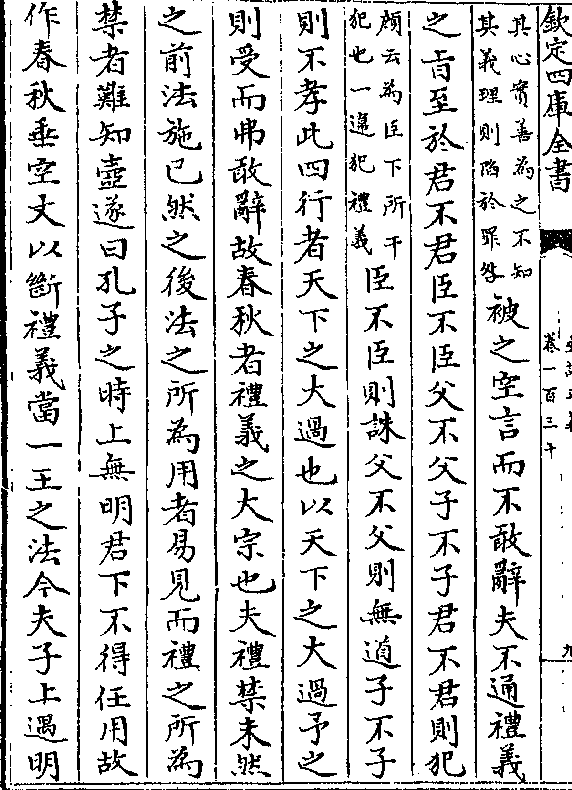 欽定四庫全書
卷一百三十
九
其心實善為之不知
其義理則陷於罪咎
被之空言而不敢辭夫不通禮義
之旨至於君不君臣不臣父不父子不子君不君則犯
顔云為臣下所干
犯也一違犯禮義
臣不臣則誅父不父則無道子不子
則不孝此四行者天下之大過也以天下之大過予之
則受而弗敢辭故春秋者禮義之大宗也夫禮禁未然
之前法施已然之後法之所為用者易見而禮之所為
禁者難知壺遂曰孔子之時上無明君下不得任用故
作春秋垂空文以斷禮義當一王之法今夫子上遇明